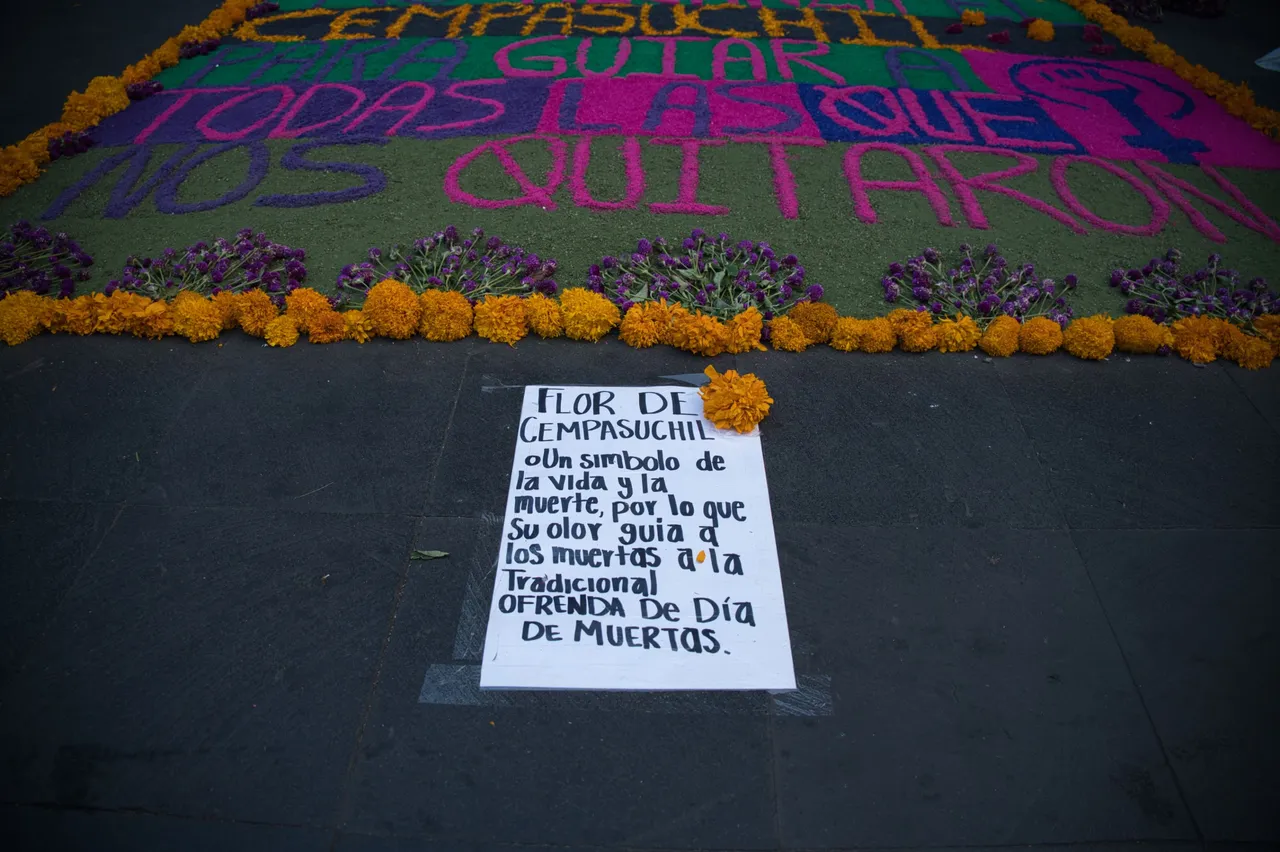 CEMPASUCHIL
PARA GUIAR A
TODAS LAS QUE
NOS QUITARON
FLOR DE
CEMPASUCHIL
Un simbolo de
la vida y la
muerte, por lo que
su olor guia a
los muertas a la
Tradicional
OFRENDA De Día
DE MUERTAS.